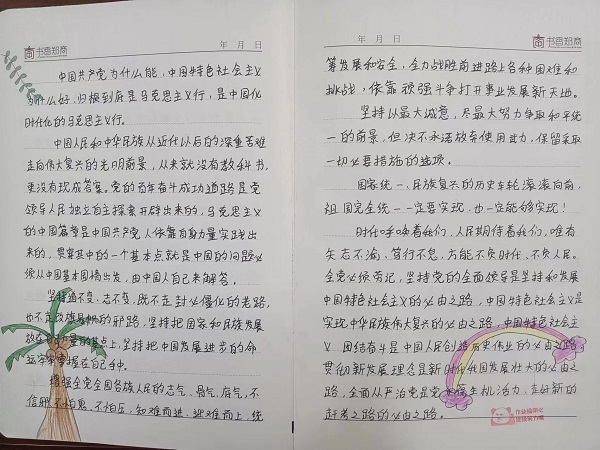 书香知商
年 月 日
中国共产党为什么能，中国特色社会主义
为什么好，归根到底是马克思主义行，是中国化
时代化的马克思主义行。
中国人民和中华民族从近代以后的深重苦难
走向伟大复兴的光明前景，从来就没有教科书，
更没有现成答案。党的百年奋斗成功道路是党
领导人民独立自主探索开辟出来的，马克思主义
的中国篇章是中国共产党人依靠自身力量实践出
来的，贯穿其中的一个基本点就是中国的问题必
须从中国基本国情出发，由中国人自己来解答。
坚持道不变、志不变，既不走封闭僵化的老路，
也不走改旗易帜的邪路，坚持把国家和民族发展
放在自己力量的基点上，坚持把中国发展进步的命
运牢牢掌握在自己手中。
增强全党全国各族人民的志气、骨气、底气，不
信邪、不怕鬼、不怕压，知难而进、迎难而上，统
书香知商
年 月 日
筹发展和安全，全力战胜前进路上各种困难和
挑战，依靠顽强斗争打开事业发展新天地。
坚持以最大诚意，尽最大努力争取和平统
一的前景，但决不承诺放弃使用武力，保留采取
一切必要措施的选项。
国家统一、民族复兴的历史车轮滚滚向前，
祖国完全统一一定要实现，也一定能够实现！
时代呼唤着我们，人民期待着我们，唯有
矢志不渝、笃行不怠，方能不负时代、不负人民。
全党必须牢记，坚持党的全面领导是坚持和发展
中国特色社会主义的必由之路，中国特色社会主义是
实现中华民族伟大复兴的必由之路，中国特色社会主
义，团结奋斗是中国人民创造历史伟业的必由之路，
贯彻新发展理念是新时代我国发展壮大的必由之
路，全面从严治党是党永葆生机活力、走好新的
赶考之路的必由之路。